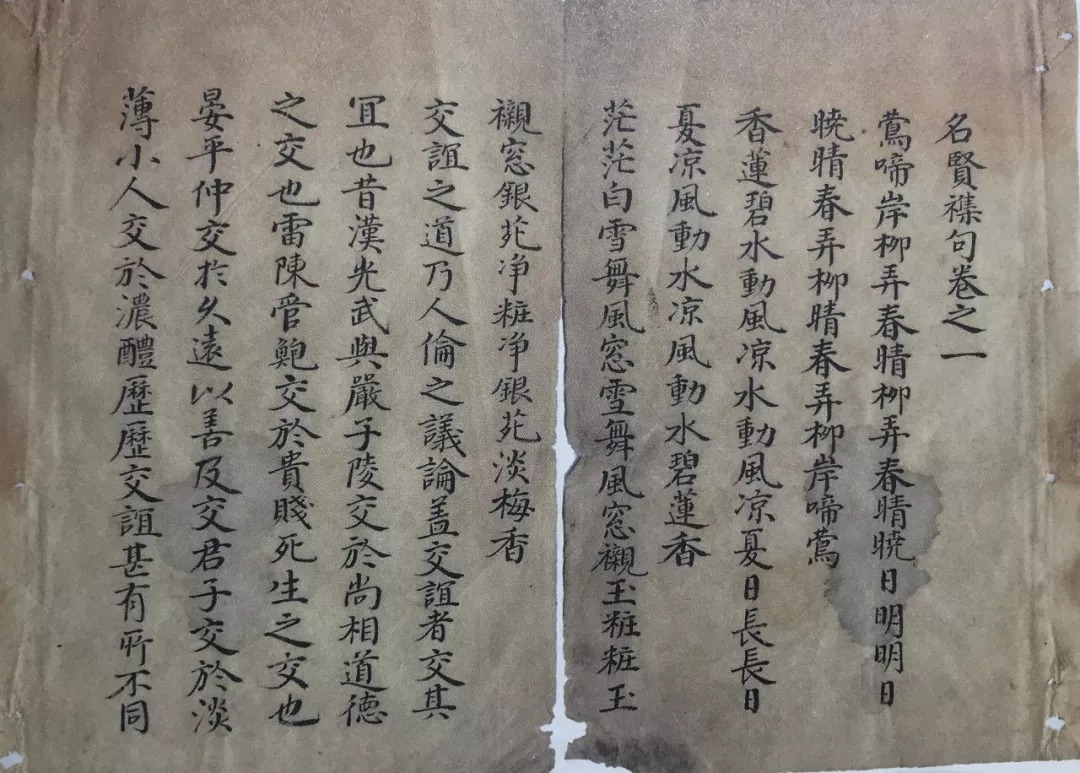 名賢襍句卷之一
鶯啼岸柳弄春晴柳弄春晴曉日明明日
曉晴春弄柳晴春弄柳岸啼鶯
香蓮碧水動風凉水動風凉夏日長長日
夏凉風動水凉風動水碧蓮香
茫茫白雪舞風窓雪舞風窓襯玉粧粧玉
襯窓銀苑净粧净銀苑淡梅香
交誼之道乃人倫之議論盖交誼者交其
冝也昔漢光武與嚴子陵交於尚相道德
之交也雷陳管鮑交於貴賤死生之交也
晏平仲交扵久遠以善及交君子交於淡
薄小人交於濃醴歷歷交誼甚有所不同